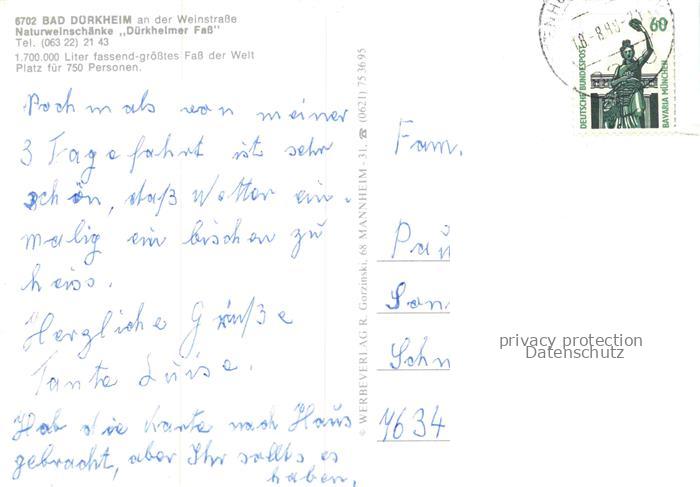 6702 BAD DÜRKHEIM an der Weinstraße
Naturweinschänke „Dürkheimer Faß"
Tel. (063 22) 21 43
1.700.000 Liter fassend-größtes Faß der Welt
Platz für 750 Personen.
Nochmals von meiner
3 Tagefahrt ist sehr
schön, daß Wetter ein-
malig ein bischen zu
heiss.
Herzliche Grüße
Tante Luise.
Hab die Karte nach Haus
gebracht, aber Ihr sollts es
haben.
© WERBEVERLAG R. Gorzinski, 68 MANNHEIM - 31, ☎ (0621) 75 36 95
Fam.
Pau
San
Schn
7634
privacy protection
Datenschutz
18.-8.90
60
DEUTSCHE BUNDESPOST
BAVARIA MÜNCHEN